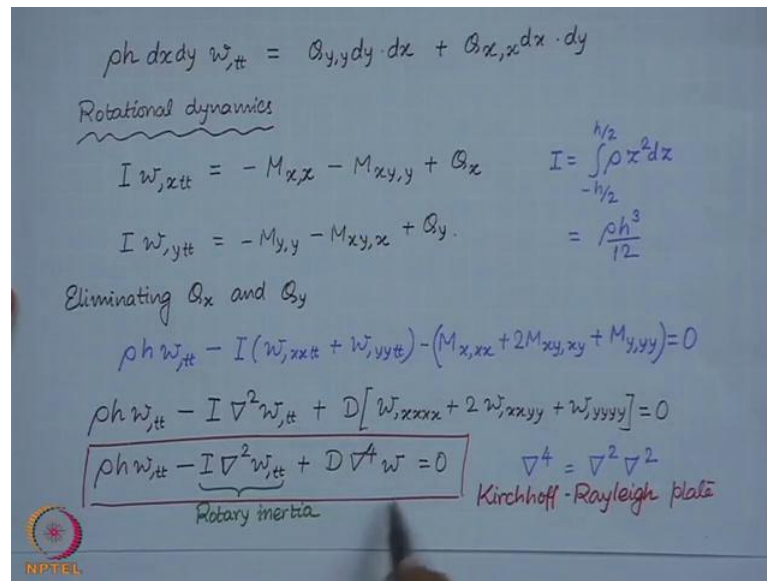 ρh dxdy w,tt = Qy,y dy·dx + Qx,x dx·dy
Rotational dynamics
I w,xtt = - Mx,x - Mxy,y + Qx
I = ∫_{-h/2}^{h/2} ρz²dz
I w,ytt = - My,y - Mxy,x + Qy.
= ρh³/12
Eliminating Qx and Qy
ρh w,tt - I(w,xxtt + w,yytt) - (Mx,xx + 2Mxy,xy + My,yy) = 0
ρh w,tt - I ∇²w,tt + D[w,xxxx + 2 w,xxyy + w,yyyy] = 0
ρh w,tt - I ∇²w,tt + D ∇⁴ w = 0
∇⁴ = ∇² ∇²
Rotary inertia
Kirchhoff - Rayleigh plate
NPTEL